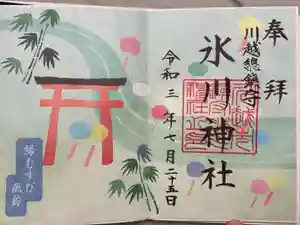 奉拝
川越總鎮守
氷川神社
令和三年七月二十五日
縁むすび
風鈴